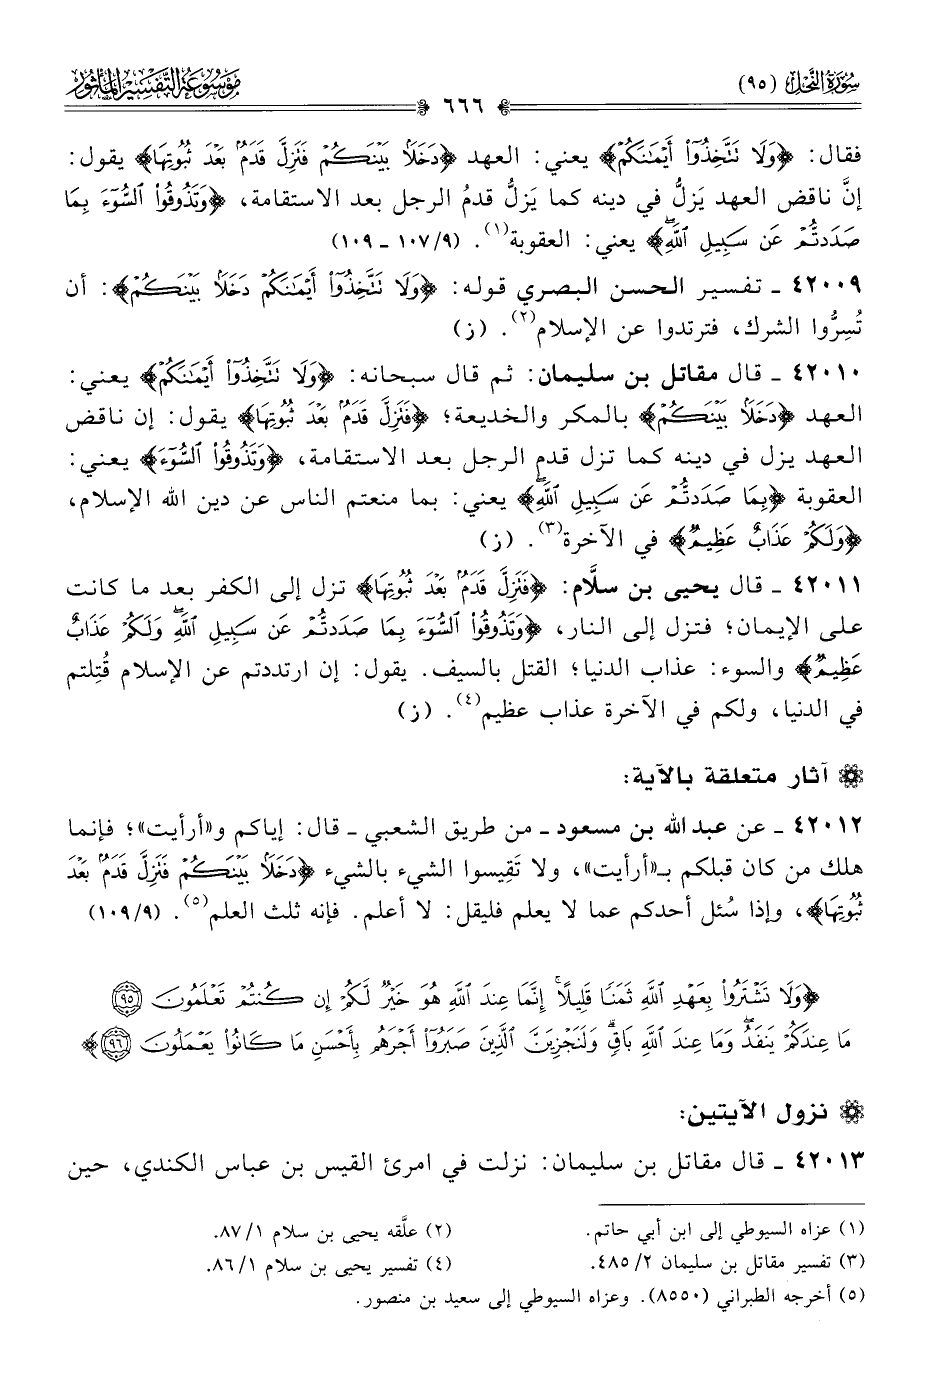 سُورَةُ النَّحْل (٩٥)
مَوْسُوعَةُ التَّفْسِيرِ المَأْثُور
٦٦٦
فقال: ﴿وَلَا تَتَّخِذُوٓا۟ أَيْمَـٰنَكُمْ﴾ يعني: العهد ﴿دَخَلًۢا بَيْنَكُمْ فَتَزِلَّ قَدَمٌۢ بَعْدَ ثُبُوتِهَا﴾ يقول:
إنَّ ناقض العهد يَزِلُّ في دينه كما يَزِلُّ قدمُ الرجل بعد الاستقامة، ﴿وَتَذُوقُوا۟ ٱلسُّوٓءَ بِمَا
صَدَدتُّمْ عَن سَبِيلِ ٱللَّهِ﴾ يعني: العقوبة(١). (١٠٧/٩ ـ ١٠٩)
٤٢٠٠٩ ـ تفسير الحسن البصري قوله: ﴿وَلَا تَتَّخِذُوٓا۟ أَيْمَـٰنَكُمْ دَخَلًۢا بَيْنَكُمْ﴾: أن
تُسِرُّوا الشرك، فترتدوا عن الإسلام(٢). (ز)
٤٢٠١٠ ـ قال مقاتل بن سليمان: ثم قال سبحانه: ﴿وَلَا تَتَّخِذُوٓا۟ أَيْمَـٰنَكُمْ﴾ يعني:
العهد ﴿دَخَلًۢا بَيْنَكُمْ﴾ بالمكر والخديعة؛ ﴿فَتَزِلَّ قَدَمٌۢ بَعْدَ ثُبُوتِهَا﴾ يقول: إن ناقض
العهد يزل في دينه كما تزل قدم الرجل بعد الاستقامة، ﴿وَتَذُوقُوا۟ ٱلسُّوٓءَ﴾ يعني:
العقوبة ﴿بِمَا صَدَدتُّمْ عَن سَبِيلِ ٱللَّهِ﴾ يعني: بما منعتم الناس عن دين الله الإسلام،
﴿وَلَكُمْ عَذَابٌ عَظِيمٌ﴾ في الآخرة(٣). (ز)
٤٢٠١١ ـ قال يحيى بن سلَّام: ﴿فَتَزِلَّ قَدَمٌۢ بَعْدَ ثُبُوتِهَا﴾ تزل إلى الكفر بعد ما كانت
على الإيمان؛ فتزل إلى النار، ﴿وَتَذُوقُوا۟ ٱلسُّوٓءَ بِمَا صَدَدتُّمْ عَن سَبِيلِ ٱللَّهِ وَلَكُمْ عَذَابٌ
عَظِيمٌ﴾ والسوء: عذاب الدنيا؛ القتل بالسيف. يقول: إن ارتددتم عن الإسلام قُتِلتم
في الدنيا، ولكم في الآخرة عذاب عظيم(٤). (ز)
آثار متعلقة بالآية:
٤٢٠١٢ ـ عن عبد الله بن مسعود ـ من طريق الشعبي ـ قال: إياكم و«أرأيت»؛ فإنما
هلك من كان قبلكم بـ«أرأيت»، ولا تَقِيسوا الشيء بالشيء ﴿دَخَلًۢا بَيْنَكُمْ فَتَزِلَّ قَدَمٌۢ بَعْدَ
ثُبُوتِهَا﴾، وإذا سُئل أحدكم عما لا يعلم فليقل: لا أعلم. فإنه ثلث العلم(٥). (١٠٩/٩)
﴿وَلَا تَشْتَرُوا۟ بِعَهْدِ ٱللَّهِ ثَمَنًا قَلِيلًا ۚ إِنَّمَا عِندَ ٱللَّهِ هُوَ خَيْرٌ لَّكُمْ إِن كُنتُمْ تَعْلَمُونَ ٩٥
مَا عِندَكُمْ يَنفَدُ ۖ وَمَا عِندَ ٱللَّهِ بَاقٍ ۗ وَلَنَجْزِيَنَّ ٱلَّذِينَ صَبَرُوٓا۟ أَجْرَهُم بِأَحْسَنِ مَا كَانُوا۟ يَعْمَلُونَ ٩٦﴾
نزول الآيتين:
٤٢٠١٣ ـ قال مقاتل بن سليمان: نزلت في امرئ القيس بن عباس الكندي، حين
(١) عزاه السيوطي إلى ابن أبي حاتم.
(٢) علَّقه يحيى بن سلام ١/ ٨٧.
(٣) تفسير مقاتل بن سليمان ٢/ ٤٨٥.
(٤) تفسير يحيى بن سلام ١/ ٨٦.
(٥) أخرجه الطبراني (٨٥٥٠). وعزاه السيوطي إلى سعيد بن منصور.